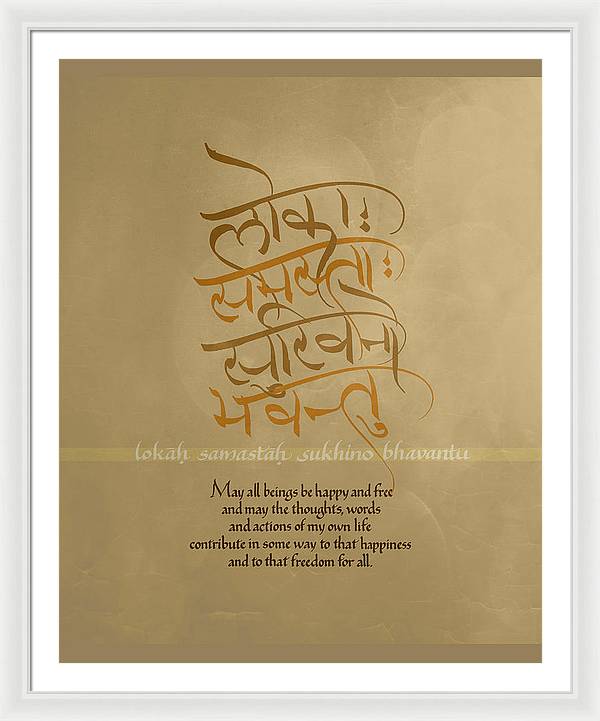 लोकाः
समस्ताः
सुखिनो
भवन्तु
lokāḥ samastāḥ sukhino bhavantu
May all beings be happy and free
and may the thoughts, words
and actions of my own life
contribute in some way to that happiness
and to that freedom for all.